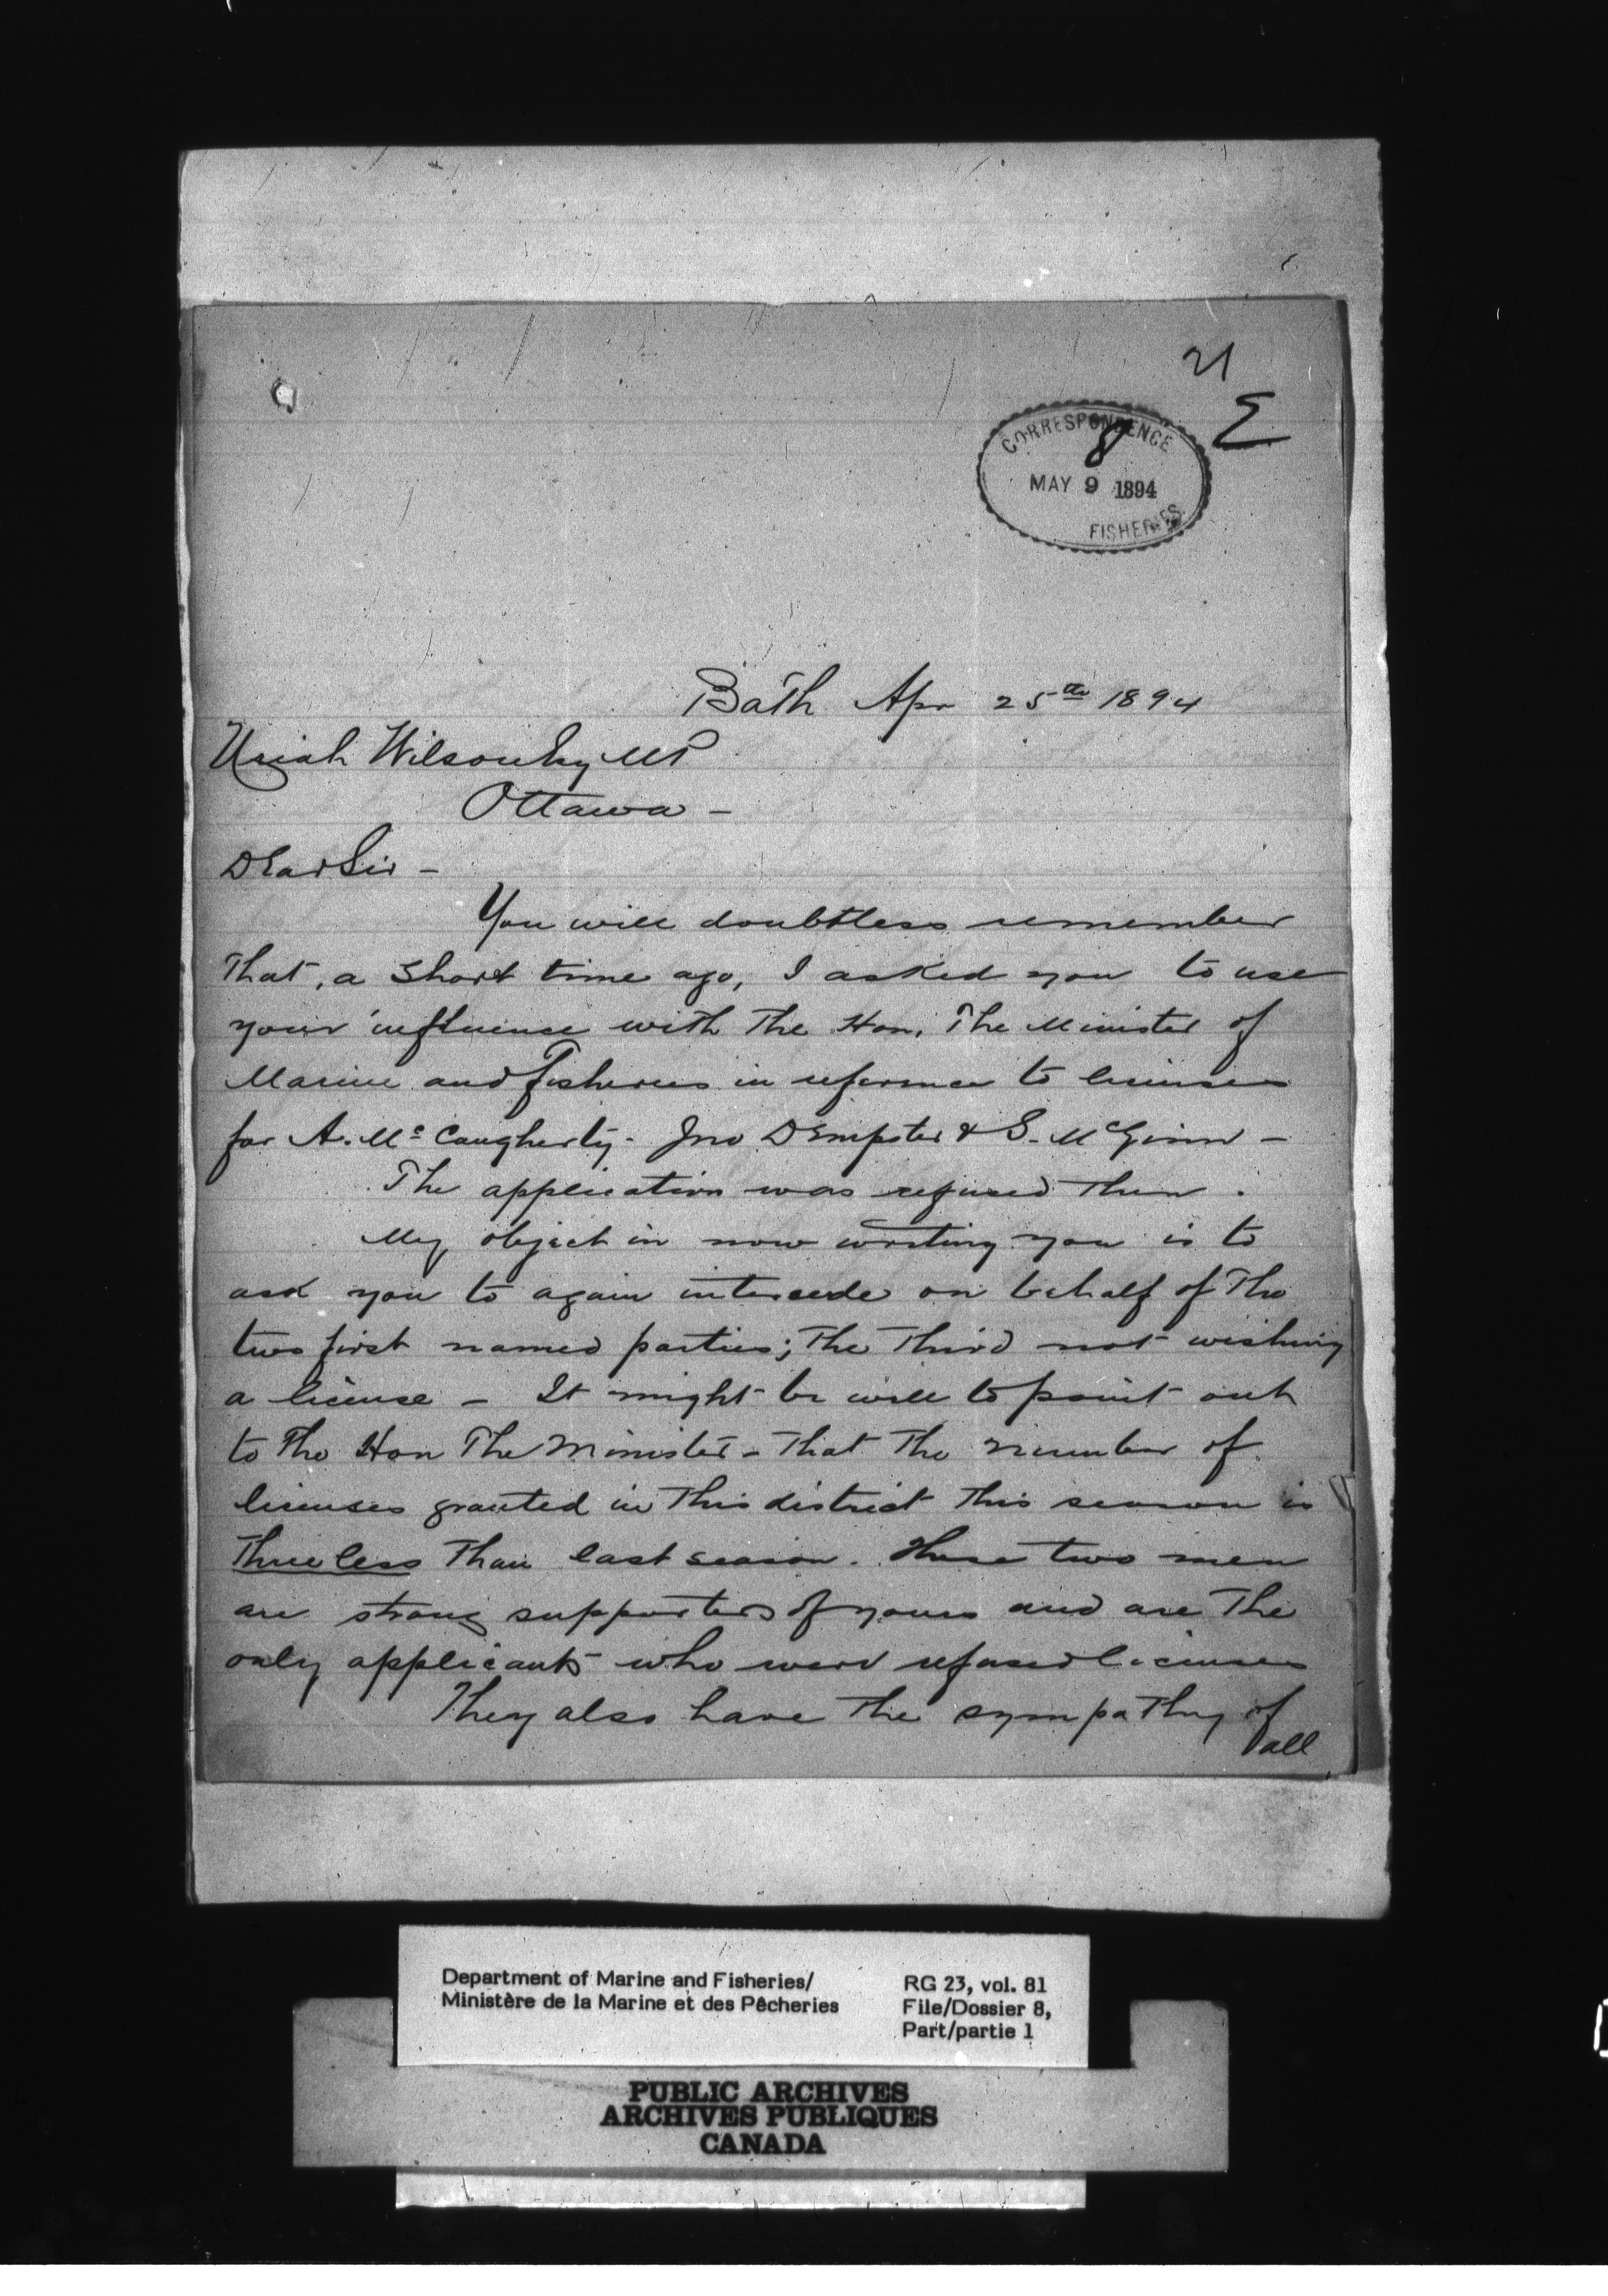 21
Σ
CORRESPONDENCE
8
MAY 9 1894
FISHERIES
Bath Apr 25th 1894
Uriah Wilson Esq MP
Ottawa -
Dear Sir -
You will doubtless remember
that, a short time ago, I asked you to use
your influence with the Hon. The Minister of
Marine and Fisheries in reference to licenses
for A. McCaugherty - Jno Dempster & S. McGinn -
The application was refused then.
My object in now writing you is to
ask you to again intercede on behalf of the
two first named parties; the third not wishing
a license - It might be well to point out
to the Hon The Minister - that the number of
licenses granted in this district this season is
three less than last season. These two men
are strong supporters of yours and are the
only applicants who were refused licenses
They also have the sympathy of
all
Department of Marine and Fisheries/
Ministère de la Marine et des Pêcheries
RG 23, vol. 81
File/Dossier 8,
Part/partie 1
PUBLIC ARCHIVES
ARCHIVES PUBLIQUES
CANADA